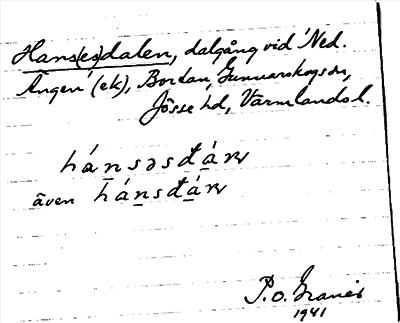 Hans(es)dalen, dalgång vid 'Ned.
Ängen' (ek), Bordan, Gunnarskogs sn,
Jösse hd, Värmlands l.
hánsəsđáɴ
även hánsđáɴ
P.O.
1941